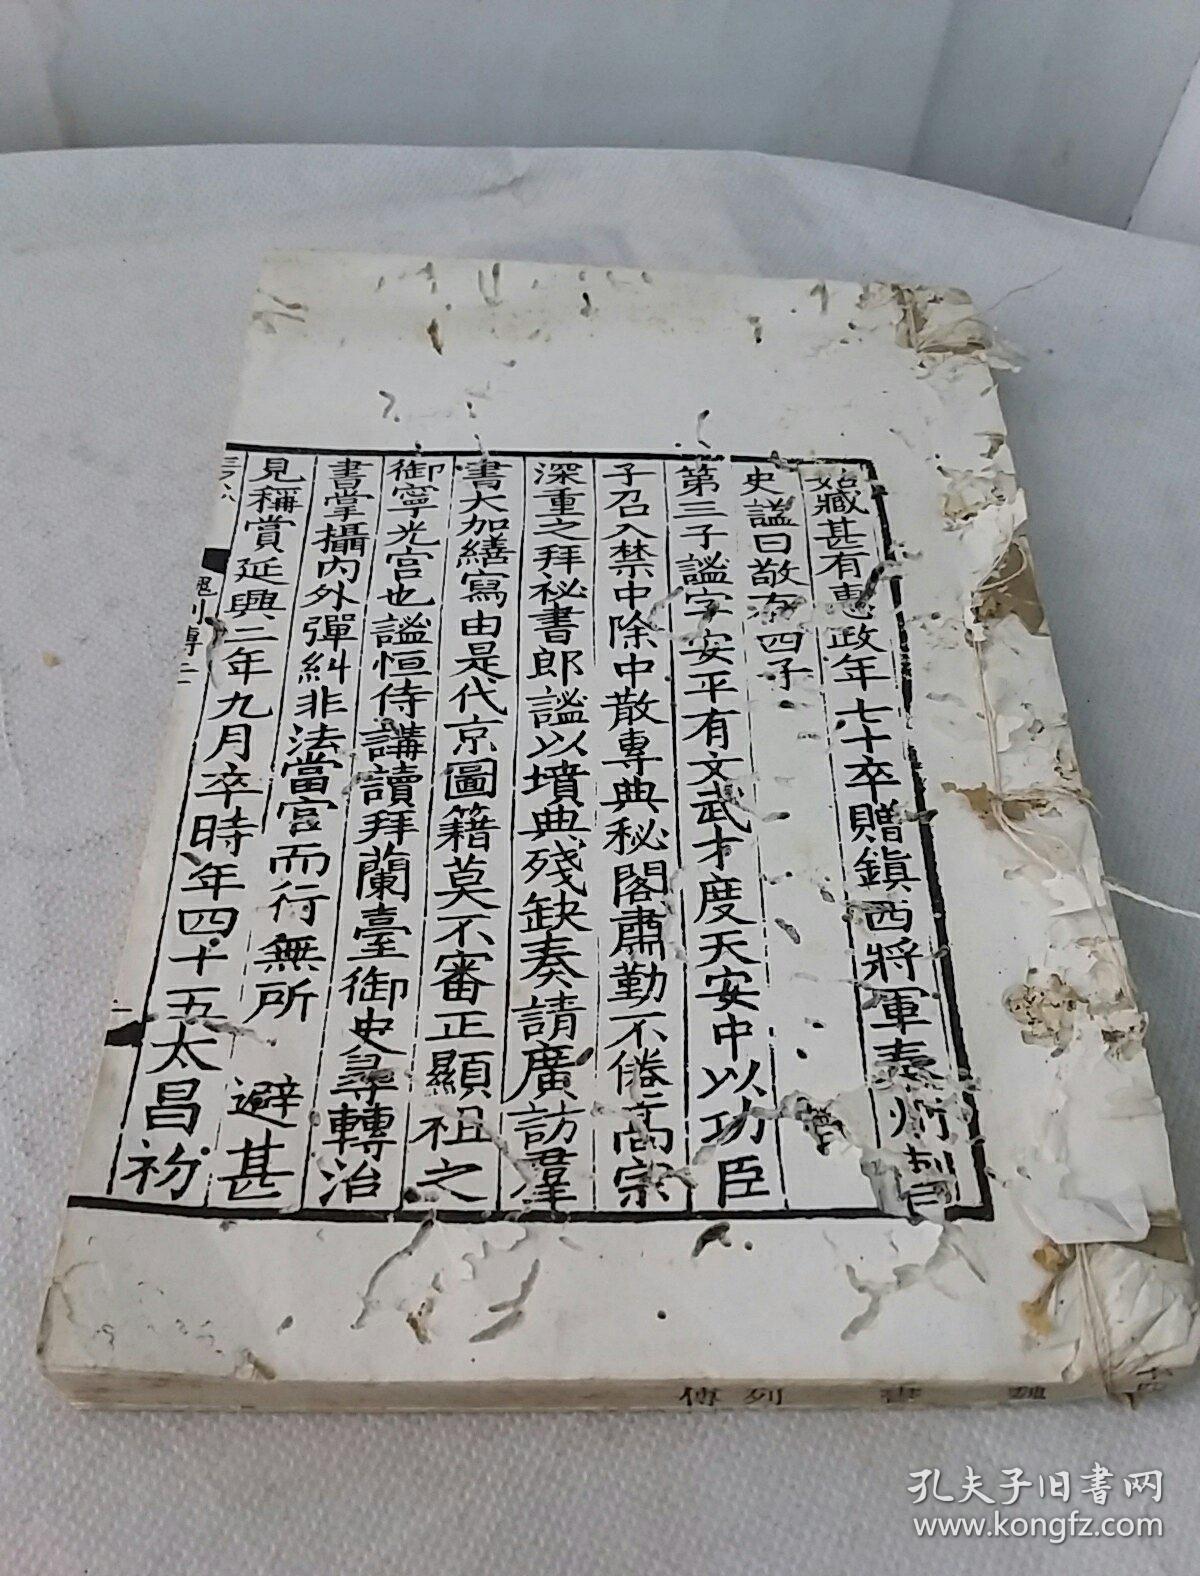 始臧甚有惠政年七十卒贈鎮西將軍秦州刺
史謚曰敬有四子
第三子謐字安平有文武才度天安中以功臣
子召入禁中除中散專典秘閣肅勤不倦高宗
深重之拜祕書郎謐以墳典殘缺奏請廣訪羣
書大加繕寫由是代京圖籍莫不審正顯祖之
御寧光宮也謐恒侍講讀拜蘭臺御史尋轉治
書掌攝內外彈糾非法當官而行無所避甚
見稱賞延興二年九月卒時年四十五太昌初
列傳
魏書列傳
孔夫子旧书网
www.kongfz.com